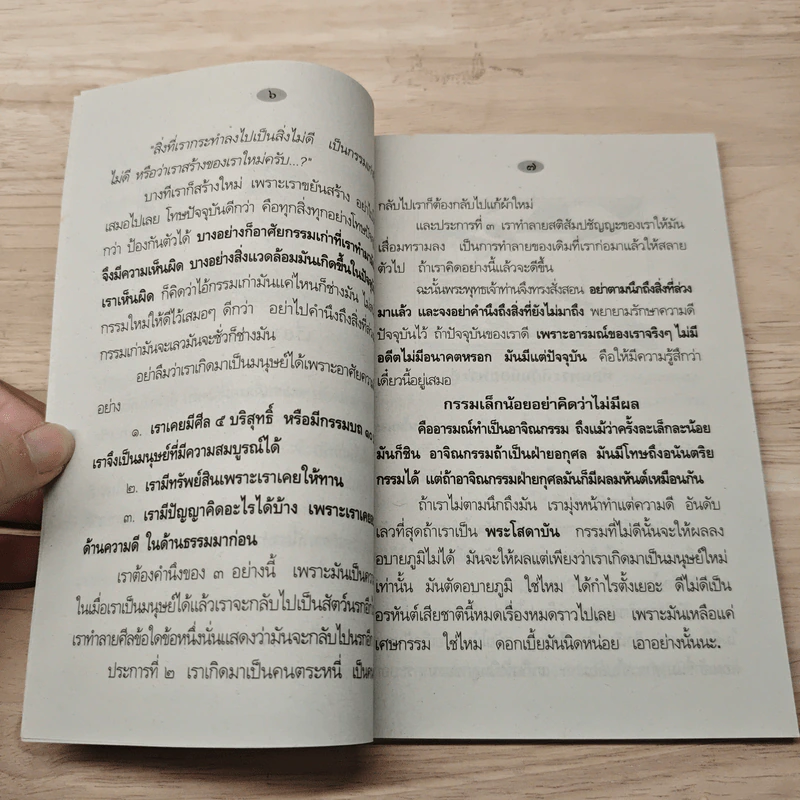 ๖
"สิ่งที่เรากระทำลงไปเป็นสิ่งไม่ดี เป็นกรรม
ไม่ดี หรือว่าเราสร้างของเราใหม่ครับ...?"
บางทีเราก็สร้างใหม่ เพราะเราขยันสร้าง
เสมอไปเลย โทษปัจจุบันดีกว่า คือทุกสิ่งทุกอย่าง
กว่า ป้องกันตัวได้ บางอย่างก็อาศัยกรรมเก่าที่เรา
จึงมีความเห็นผิด บางอย่างสิ่งแวดล้อมมันเกิดขึ้นใน
เราเห็นผิด ก็คิดว่าไอ้กรรมเก่ามันแค่ไหนก็ช่างมัน
กรรมใหม่ให้ดีไว้เสมอๆ ดีกว่า อย่าไปคำนึงถึงสิ่งที่
กรรมเก่ามันจะเลวมันจะชั่วก็ช่างมัน
อย่าลืมว่าเราเกิดมาเป็นมนุษย์ได้เพราะอาศัย
อย่าง
๑. เราเคยมีศีล ๕ บริสุทธิ์ หรือมีกรรมบถ ๑๐
เราจึงเป็นมนุษย์ที่มีความสมบูรณ์ได้
๒. เรามีทรัพย์สินเพราะเราเคยให้ทาน
๓. เรามีปัญญาคิดอะไรได้บ้าง เพราะเรา
ด้านความดี ในด้านธรรมมาก่อน
เราต้องคำนึงของ ๓ อย่างนี้ เพราะมันเป็น
ในเมื่อเราเป็นมนุษย์ได้แล้วเราจะกลับไปเป็นสัตว์นรกอีก
เราทำลายศีลข้อใดข้อหนึ่งนั่นแสดงว่ามันจะกลับไปนรกอีก
ประการที่ ๒ เราเกิดมาเป็นคนตระหนี่
๗
กลับไปเราก็ต้องกลับไปแก้ผ้าใหม่
และประการที่ ๓ เราทำลายสติสัมปชัญญะของเราให้มัน
เสื่อมทรามลง เป็นการทำลายของเดิมที่เราก่อมาแล้วให้สลาย
ตัวไป ถ้าเราคิดอย่างนี้แล้วจะดีขึ้น
ฉะนั้นพระพุทธเจ้าท่านจึงทรงสั่งสอน อย่าตามนึกถึงสิ่งที่ล่วง
มาแล้ว และจงอย่าคำนึงถึงสิ่งที่ยังไม่มาถึง พยายามรักษาความดี
ปัจจุบันไว้ ถ้าปัจจุบันของเราดี เพราะอารมณ์ของเราจริงๆ ไม่มี
อดีตไม่มีอนาคตหรอก มันมีแต่ปัจจุบัน คือให้มีความรู้สึกว่า
เดี๋ยวนี้อยู่เสมอ
กรรมเล็กน้อยอย่าคิดว่าไม่มีผล
คืออารมณ์ทำเป็นอาจิณกรรม ถึงแม้ว่าครั้งละเล็กละน้อย
มันก็ชิน อาจิณกรรมถ้าเป็นฝ่ายอกุศล มันมีโทษถึงอนันตริย
กรรมได้ แต่ถ้าอาจิณกรรมฝ่ายกุศลมันก็มีผลมหันต์เหมือนกัน
ถ้าเราไม่ตามนึกถึงมัน เรามุ่งหน้าทำแต่ความดี อันดับ
เลวที่สุดถ้าเราเป็น พระโสดาบัน กรรมที่ไม่ดีนั้นจะให้ผลลง
อบายภูมิไม่ได้ มันจะให้ผลแต่เพียงว่าเราเกิดมาเป็นมนุษย์ใหม่
เท่านั้น มันตัดอบายภูมิ ใช่ไหม ได้กำไรตั้งเยอะ ดีไม่ดีเป็น
อรหันต์เสียชาตินี้หมดเรื่องหมดราวไปเลย เพราะมันเหลือแค่
เศษกรรม ใช่ไหม ดอกเบี้ยมันนิดหน่อย เอาอย่างนั้นนะ.